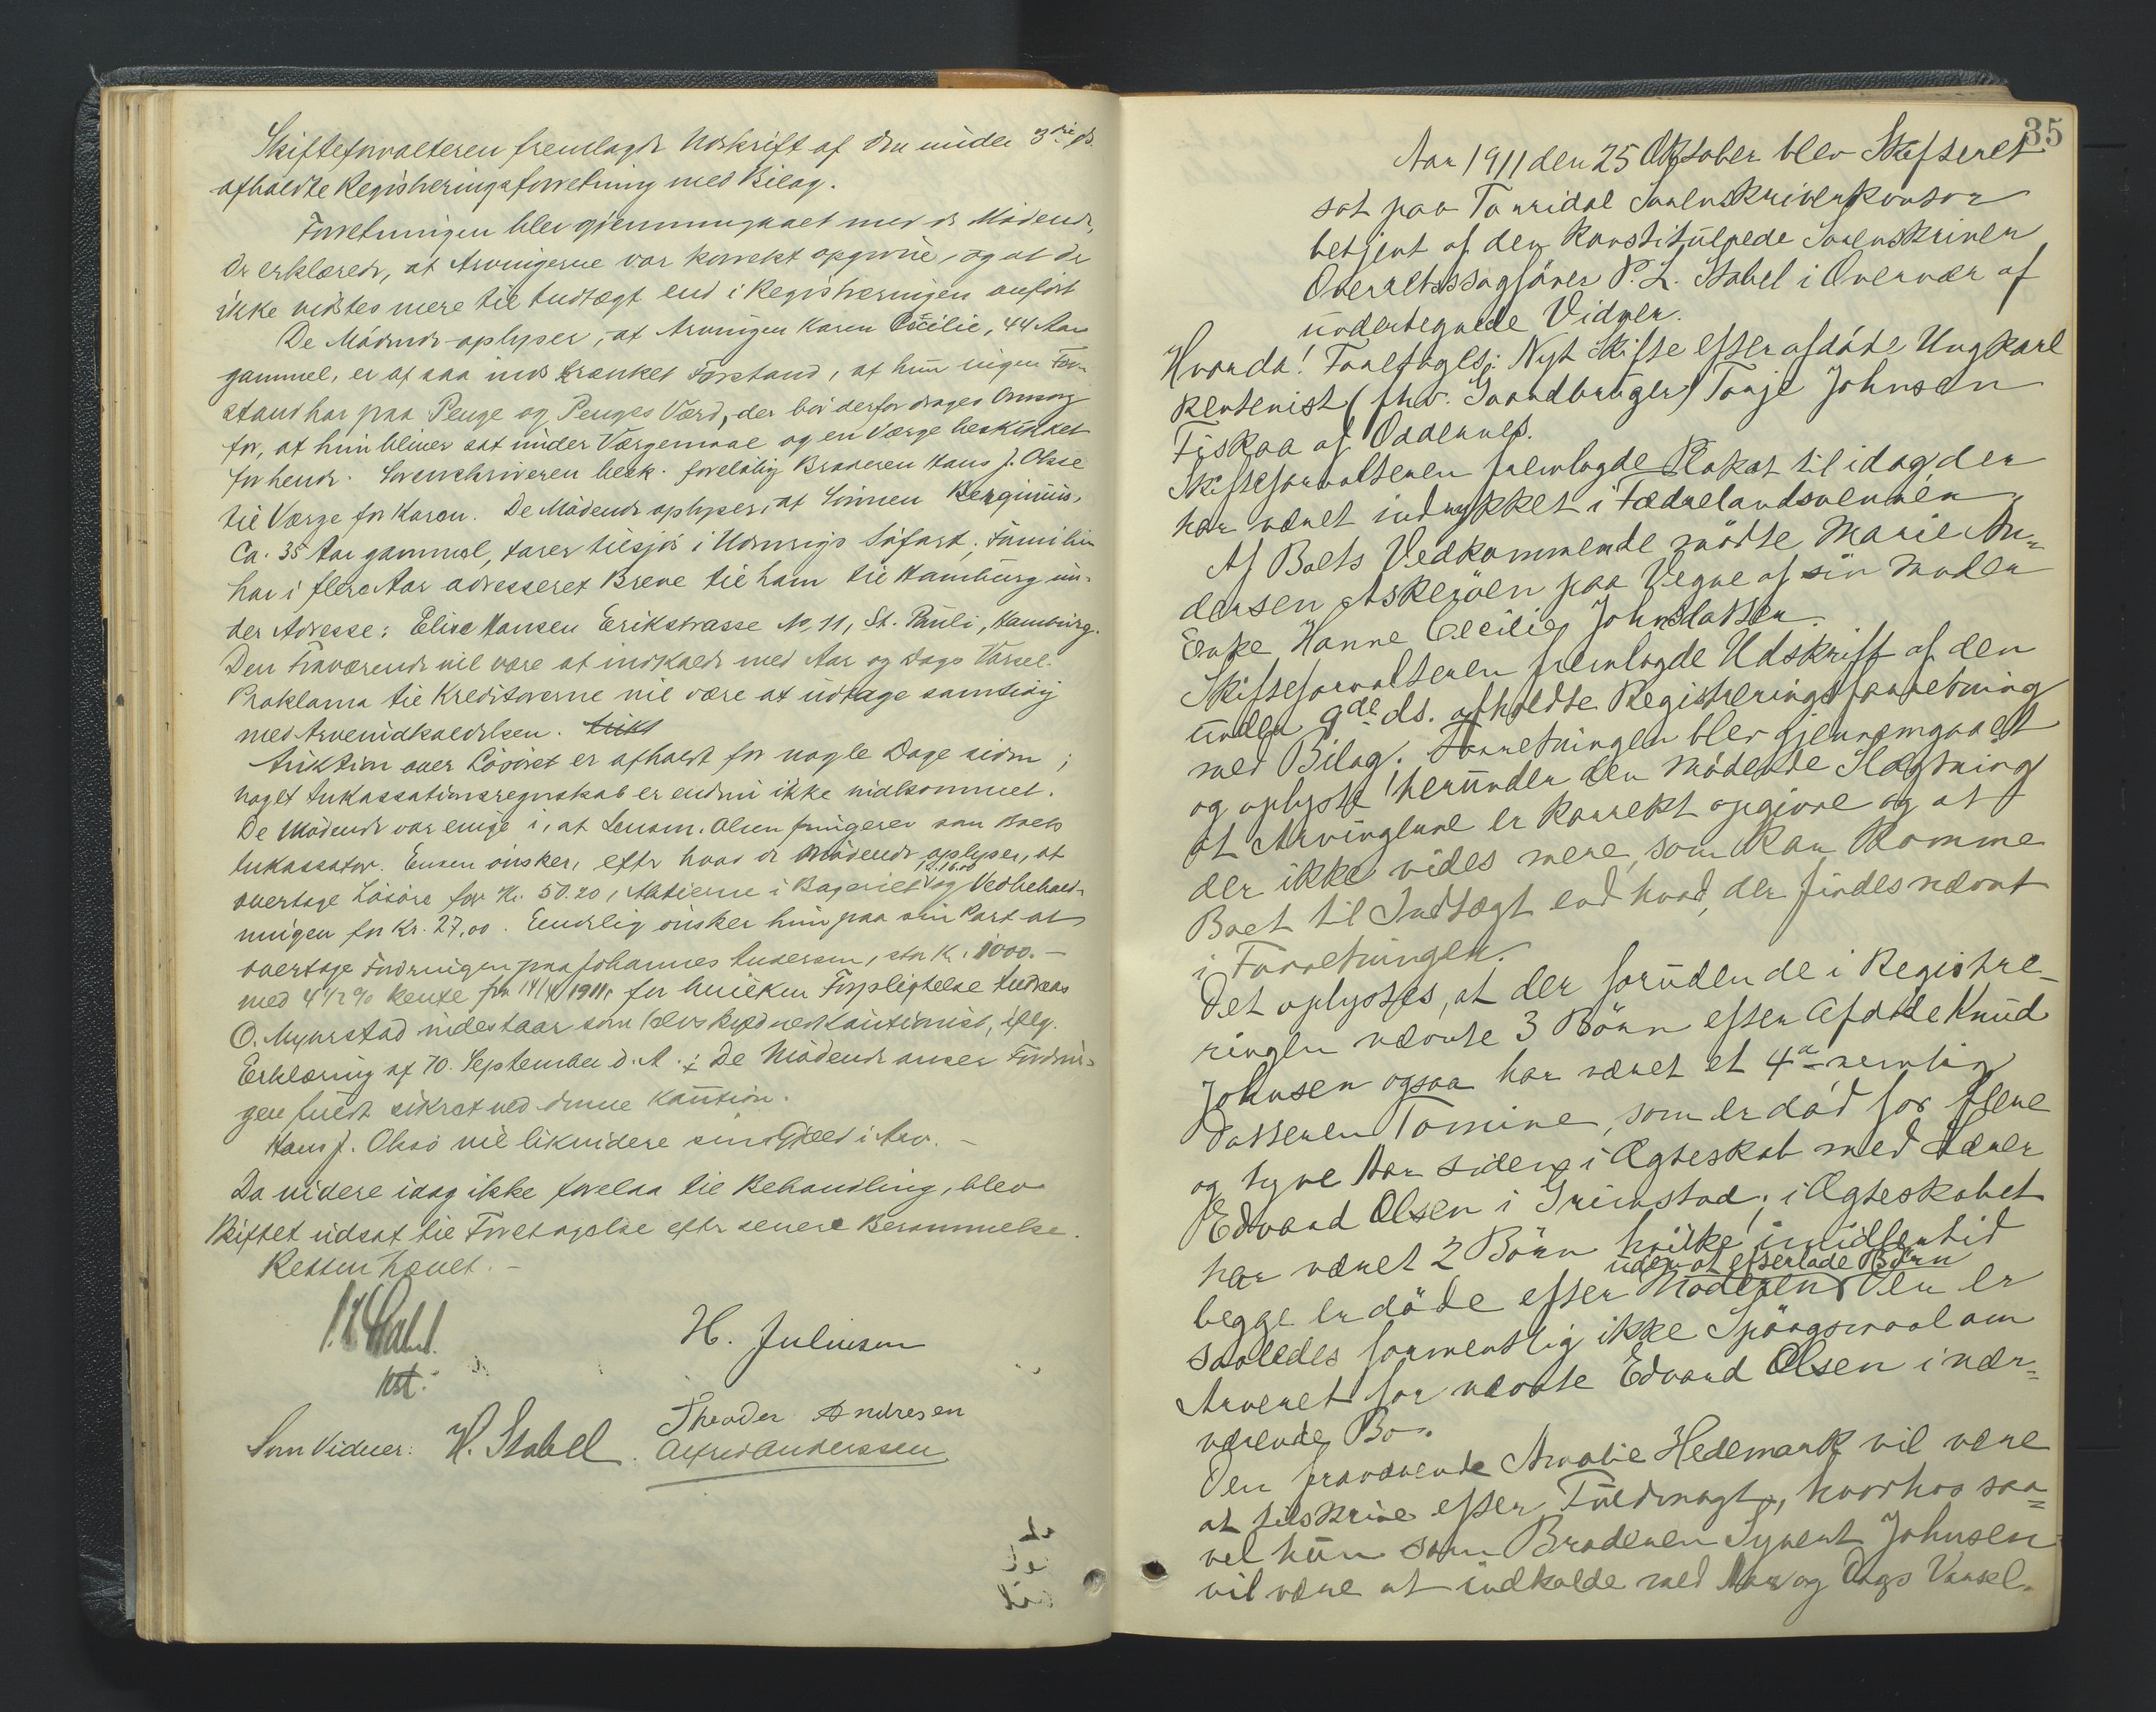 Skifteforvalteren fremlagde Udskrift af den under 3die ds.
afholdte Registreringsforretning med Bilag.
Forretningen blev gjennemgaaet med de Mödende,
de erklærede, at Arvingerne var korrekt opgivne, og at der
ikke vidstes mere til Indtægt end i Registreringen anfört
De Mödende oplyser, at Arvingen Karen Cecilie, 44 Aar
gammel, er af saa indskrænket Forstand, at hun ingen For-
stand har paa Penge og Penges Værd, der bör derfor drages Omsorg
for, at hun bliver sat under Værgemaal og en Værge beskikket
for hende. Sorenskriveren besk. forelöbig Broderen Hans J. Oksö
til Værge for Karen. De Mödende oplyser, at Sönnen Berginius,
Ca. 35 Aar gammel, farer tilsjös i Udenrigs Söfart. Familien
har i flere Aar adresseret Breve til ham til Hamburg un-
der Adresse: Elise Hansen Erikstrasse No, 11, St. Pauli, Hamburg.
Den Fraværende vil være at indkalde med Aar og Dags Varsel.
Proklama til Kreditorerne vil være at udtage samtidig
med Arveindkaldelsen. Aukt
Auktion over Lösöret er afholdt for nogle Dage siden;
noget Inkassationsregnskab er endnu ikke indkommet.
De Mödende var enige i, at Lensm. Olsen fungerer som Boets
Inkassator. Enken önsker, efter hvad de Mödende oplyser, at
overtage Lösöre for Kr. 50.20, Aktierne i Bageriet og Vedbehold-
ningen for Kr. 27,00. Endelig önsker hun paa sin Part at
overtage Fordringen paa Johannes Andersen, stor Kr. 1000.-
med 4 1/2 % Rente fra 14/4 1911, for hvilken Forpligtelse Andreas
O. Myhrstad indestaar som selvskyldnerkautionist, iflg.
Erklæring af 70. September d. A.; De Mödende anser Fordrin-
gen fuldt sikret ved denne Kaution.
Hans J. Oksö vil likvidere sin Gjæld i Arv. -
Da videre idag ikke forelaa til Behandling, blev
Skiftet udsat til Foretagelse efter senere Berammelse.
Retten hævet. -
P. L. Stabel
kst.
H. Juliusen
Theodor Andresen
Som Vidner: H. Stabel. Alfred Anderssen
35
Aar 1911 den 25 Oktober blev Skifteret
sat paa Torridal Sorenskriverkontor
betjent af den konstituerede Sorenskriver
Overretssagförer P. L. Stabel i Overvær af
undertegnede Vidner.
Hvorda! Foretoges: Nyt Skifte efter afdöde Ungkarl
Rentenist (fhv. Gaardbruger) Tonje Johnsen
Fiskaa af Oddernes.
Skifteforvalteren fremlagde Plakat til idag der
har været indrykket i Fædrelandsvennen
Af Boets Vedkommende mödte Marie An-
dersen Askeröen paa Vegne af sin Moder
Enke Hanne Cecilie Johnsdatter.
Skifteforvalteren fremlagde Udskrift af den
under 9de ds. afholdte Registreringsforretning
med Bilag. Forretningen blev gjennemgaaet
og oplyste herunder den mödende Slægtning
at Arvingerne er korrekt opgivne og at
der ikke vides mere, som kan komme
Boet til Indtægt end hvad, der findes nævnt
i Forretningen.
Det oplystes, at der foruden de i Registre-
ringen nævnte 3 Börn efter Afdöde Knud
Johnsen ogsaa har været et 4de nemlig
Datteren Tomine, som er död for flere
og tyve Aar siden i Ægteskab med Lærer
Edvard Olsen i Grimstad; i Ægteskabet
har været 2 Börn hvilke imidlertid
uden at efterlade Börn
begge er döde efter Moderen. Der er
saaledes formentlig ikke Spörgsmaal om
Arveret for nævnte Edvard Olsen i nær-
værende Bo.
Den fraværende Amalie Hedemark vil være
at tilskrive efter Fuldmagt, hvorhos saa-
vel hun som Broderen Syvert Johnsen
vil være at indkalde med Aar og Dags Varsel.